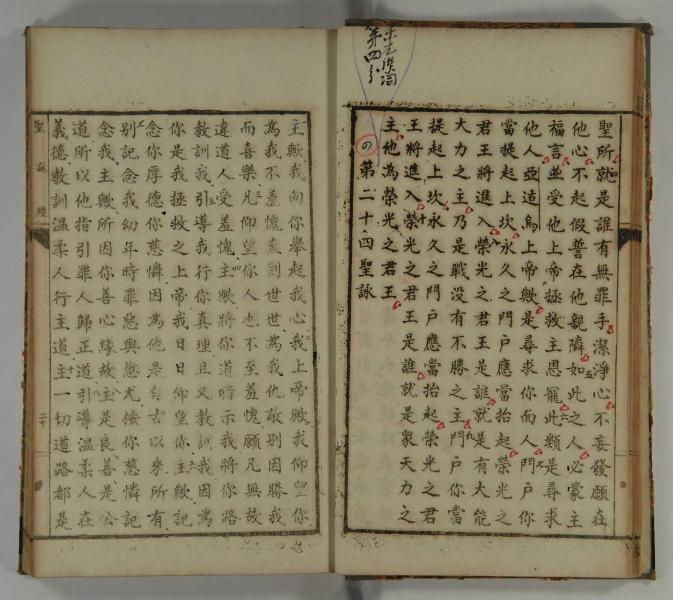 第四引
聖所就是誰有無罪手潔淨心不妄發願在
他心不起假誓在他親隣如此之人必蒙主
福言並受他上帝拯救主恩寵此類是尋求
他人亞适烏上帝歟是尋求你面人門戶你
當提起上坎永久之門戶應當抬起榮光之
君王將進入榮光之君王是誰就是有大能
大力之主乃是戰没有不勝之主門戶你當
提起上坎永久之門戶應當抬起榮光之君
王將進入榮光之君王是誰就是衆天力之
主他為榮光之君王
の第二十四聖詠
主歟我向你舉起我心我上帝歟我仰望你
為我不羞愧直到世世為我仇敵别因勝我
而喜樂凡仰望你人也不至羞愧願凡無故
違道人受羞愧主歟將你道啓示我將你路
教訓我引導我行你真理且又教訓我因為
你是我拯救之上帝我日日仰望你主歟記
念你厚德你慈憐因為他是自古以來所有
别記念我幼年時罪惡與愆尤按你慈憐記
念我主歟所因你善心緣故主是良善是公
道所以他指引罪人歸正道引導温柔人在
義德教訓温柔人行主道主一切道路都是
聖詠經 二十